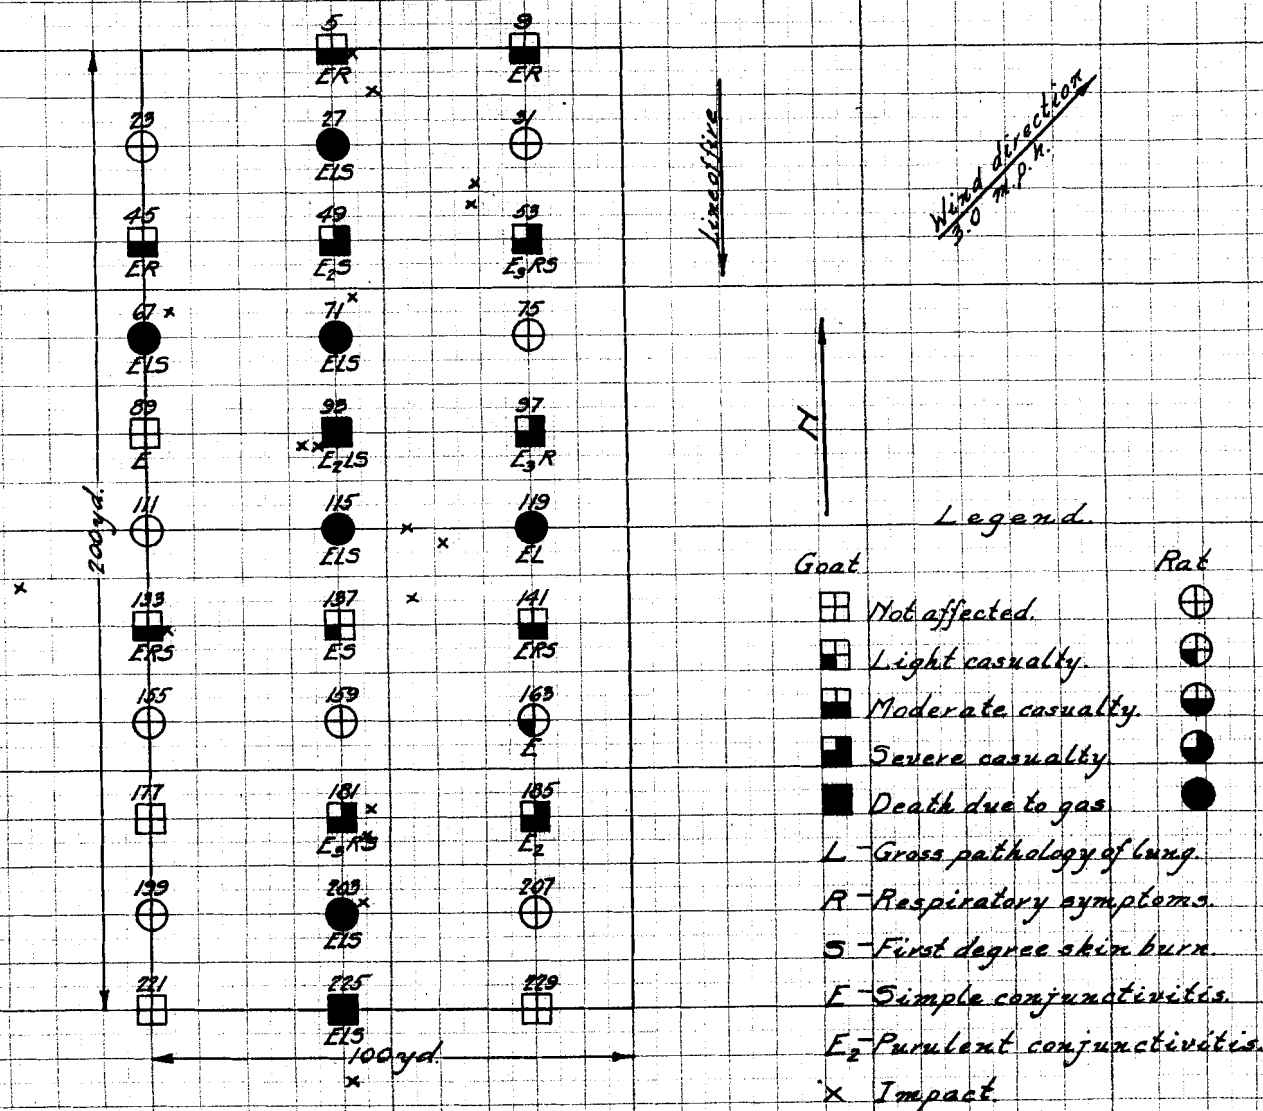 5 9
ER ER
23 27 31
ELS
45 49 53
ER E₂S E₃RS
67 71 75
ELS ELS
89 93 97
E E₂LS E₃R
111 115 119
ELS EL
133 137 141
ERS ES ERS
155 159 163
E
177 181 185
E₃RS E₂
199 203 207
ELS
221 225 229
ELS
200 yd.
100 yd.
Line of fire
Wind direction
3.0 m.p.h.
N
Legend.
Goat Rat
Not affected.
Light casualty.
Moderate casualty.
Severe casualty
Death due to gas
L - Gross pathology of lung.
R - Respiratory symptoms.
S - First degree skin burn.
E - Simple conjunctivitis.
E₂ - Purulent conjunctivitis.
x Impact.